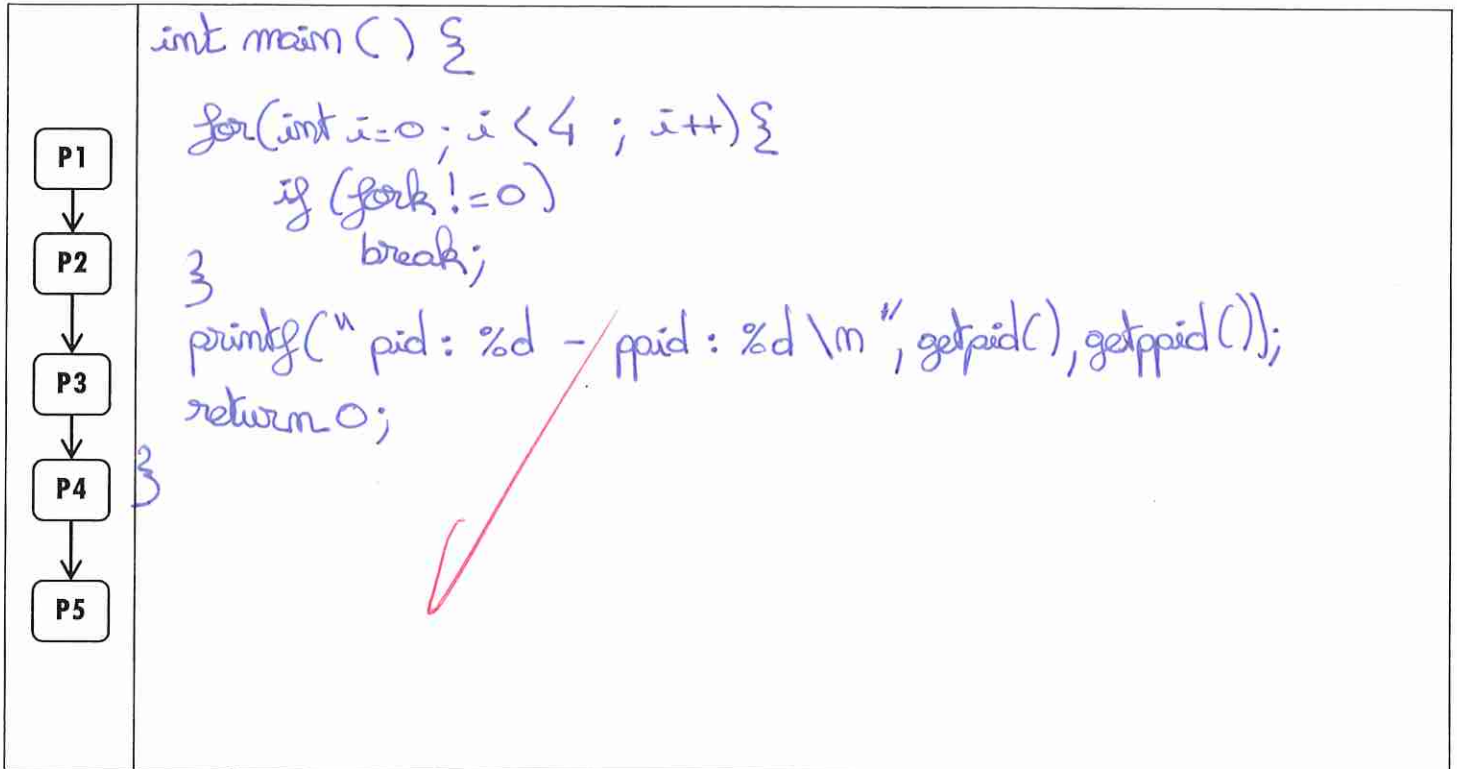 P1
P2
P3
P4
P5
int main() {
for(int i=0; i<4 ; i++){
if (fork!=0)
break;
}
printf("pid: %d - ppid: %d \n", getpid(), getppid());
return 0;
}